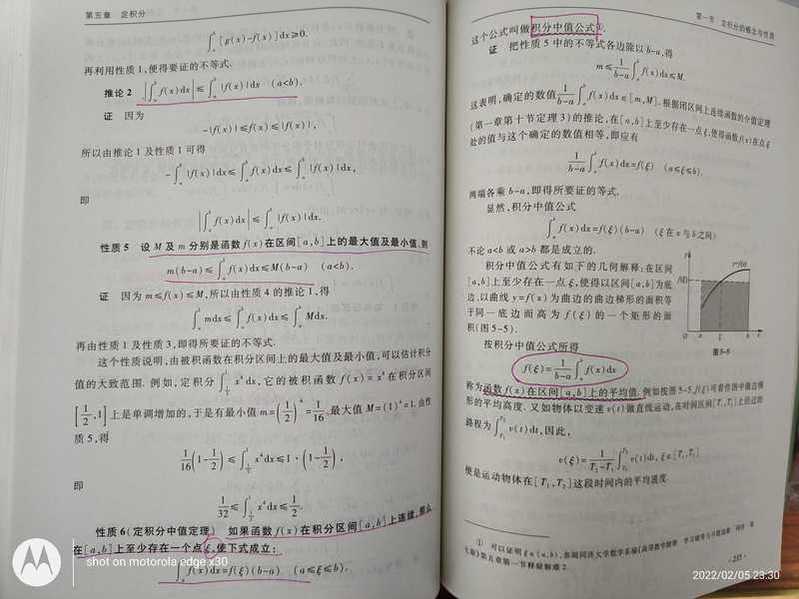 第五章 定积分
∫ₐᵇ [g(x)-f(x)]dx≥0.
再利用性质1,便得要证的不等式.
推论2 |∫ₐᵇ f(x)dx| ≤ ∫ₐᵇ |f(x)|dx (a<b).
证 因为
-|f(x)|≤f(x)≤|f(x)|,
所以由推论1及性质1可得
-∫ₐᵇ |f(x)|dx≤∫ₐᵇ f(x)dx≤∫ₐᵇ |f(x)|dx,
即
|∫ₐᵇ f(x)dx| ≤ ∫ₐᵇ |f(x)|dx.
性质5 设M及m分别是函数f(x)在区间[a,b]上的最大值及最小值,则
m(b-a)≤∫ₐᵇ f(x)dx≤M(b-a) (a<b).
证 因为m≤f(x)≤M,所以由性质4的推论1,得
∫ₐᵇ mdx≤∫ₐᵇ f(x)dx≤∫ₐᵇ Mdx.
再由性质1及性质3,即得所要证的不等式.
这个性质说明,由被积函数在积分区间上的最大值及最小值,可以估计积分
值的大致范围.例如,定积分∫_{1/2}^1 x⁴dx,它的被积函数f(x)=x⁴在积分区间
[1/2,1]上是单调增加的,于是有最小值m=(1/2)⁴=1/16,最大值M=(1)⁴=1.由性
质5,得
1/16(1-1/2)≤∫_{1/2}^1 x⁴dx≤1·(1-1/2),
即
1/32≤∫_{1/2}^1 x⁴dx≤1/2.
性质6(定积分中值定理) 如果函数f(x)在积分区间[a,b]上连续,那么
在[a,b]上至少存在一个点ξ,使下式成立:
∫ₐᵇ f(x)dx=f(ξ)(b-a) (a≤ξ≤b).
motorola
shot on motorola edge x30
第一节 定积分的概念与性质
这个公式叫做积分中值公式①.
证 把性质5中的不等式各边除以b-a,得
m≤1/(b-a) ∫ₐᵇ f(x)dx≤M.
这表明,确定的数值1/(b-a) ∫ₐᵇ f(x)dx∈[m,M].根据闭区间上连续函数的介值定理
(第一章第十节定理3)的推论,在[a,b]上至少存在一点ξ,使得函数f(x)在点ξ
处的值与这个确定的数值相等,即应有
1/(b-a) ∫ₐᵇ f(x)dx=f(ξ) (a≤ξ≤b).
两端各乘b-a,即得所要证的等式.
显然,积分中值公式
∫ₐᵇ f(x)dx=f(ξ)(b-a) (ξ在a与b之间)
不论a<b或a>b都是成立的.
积分中值公式有如下的几何解释:在区间
[a,b]上至少存在一点ξ,使得以区间[a,b]为底
边、以曲线y=f(x)为曲边的曲边梯形的面积等
于同一底边而高为f(ξ)的一个矩形的面
积(图5-5).
y
y=f(x)
f(ξ)
O a ξ b x
图5-5
按积分中值公式所得
f(ξ)=1/(b-a) ∫ₐᵇ f(x)dx
称为函数f(x)在区间[a,b]上的平均值.例如按图5-5,f(ξ)可看作图中曲边梯
形的平均高度.又如物体以变速v(t)做直线运动,在时间区间[T₁,T₂]上经过的
路程为∫_{T₁}^{T₂} v(t)dt,因此,
v(ξ)=1/(T₂-T₁) ∫_{T₁}^{T₂} v(t)dt, ξ∈[T₁,T₂]
便是运动物体在[T₁,T₂]这段时间内的平均速度.
① 可以证明ξ∈(a,b),参阅同济大学数学系编《高等数学附册 学习辅导与习题选解 同济·第
七版》第五章第一节释疑解难2.
·235·
2022/02/05 23:30